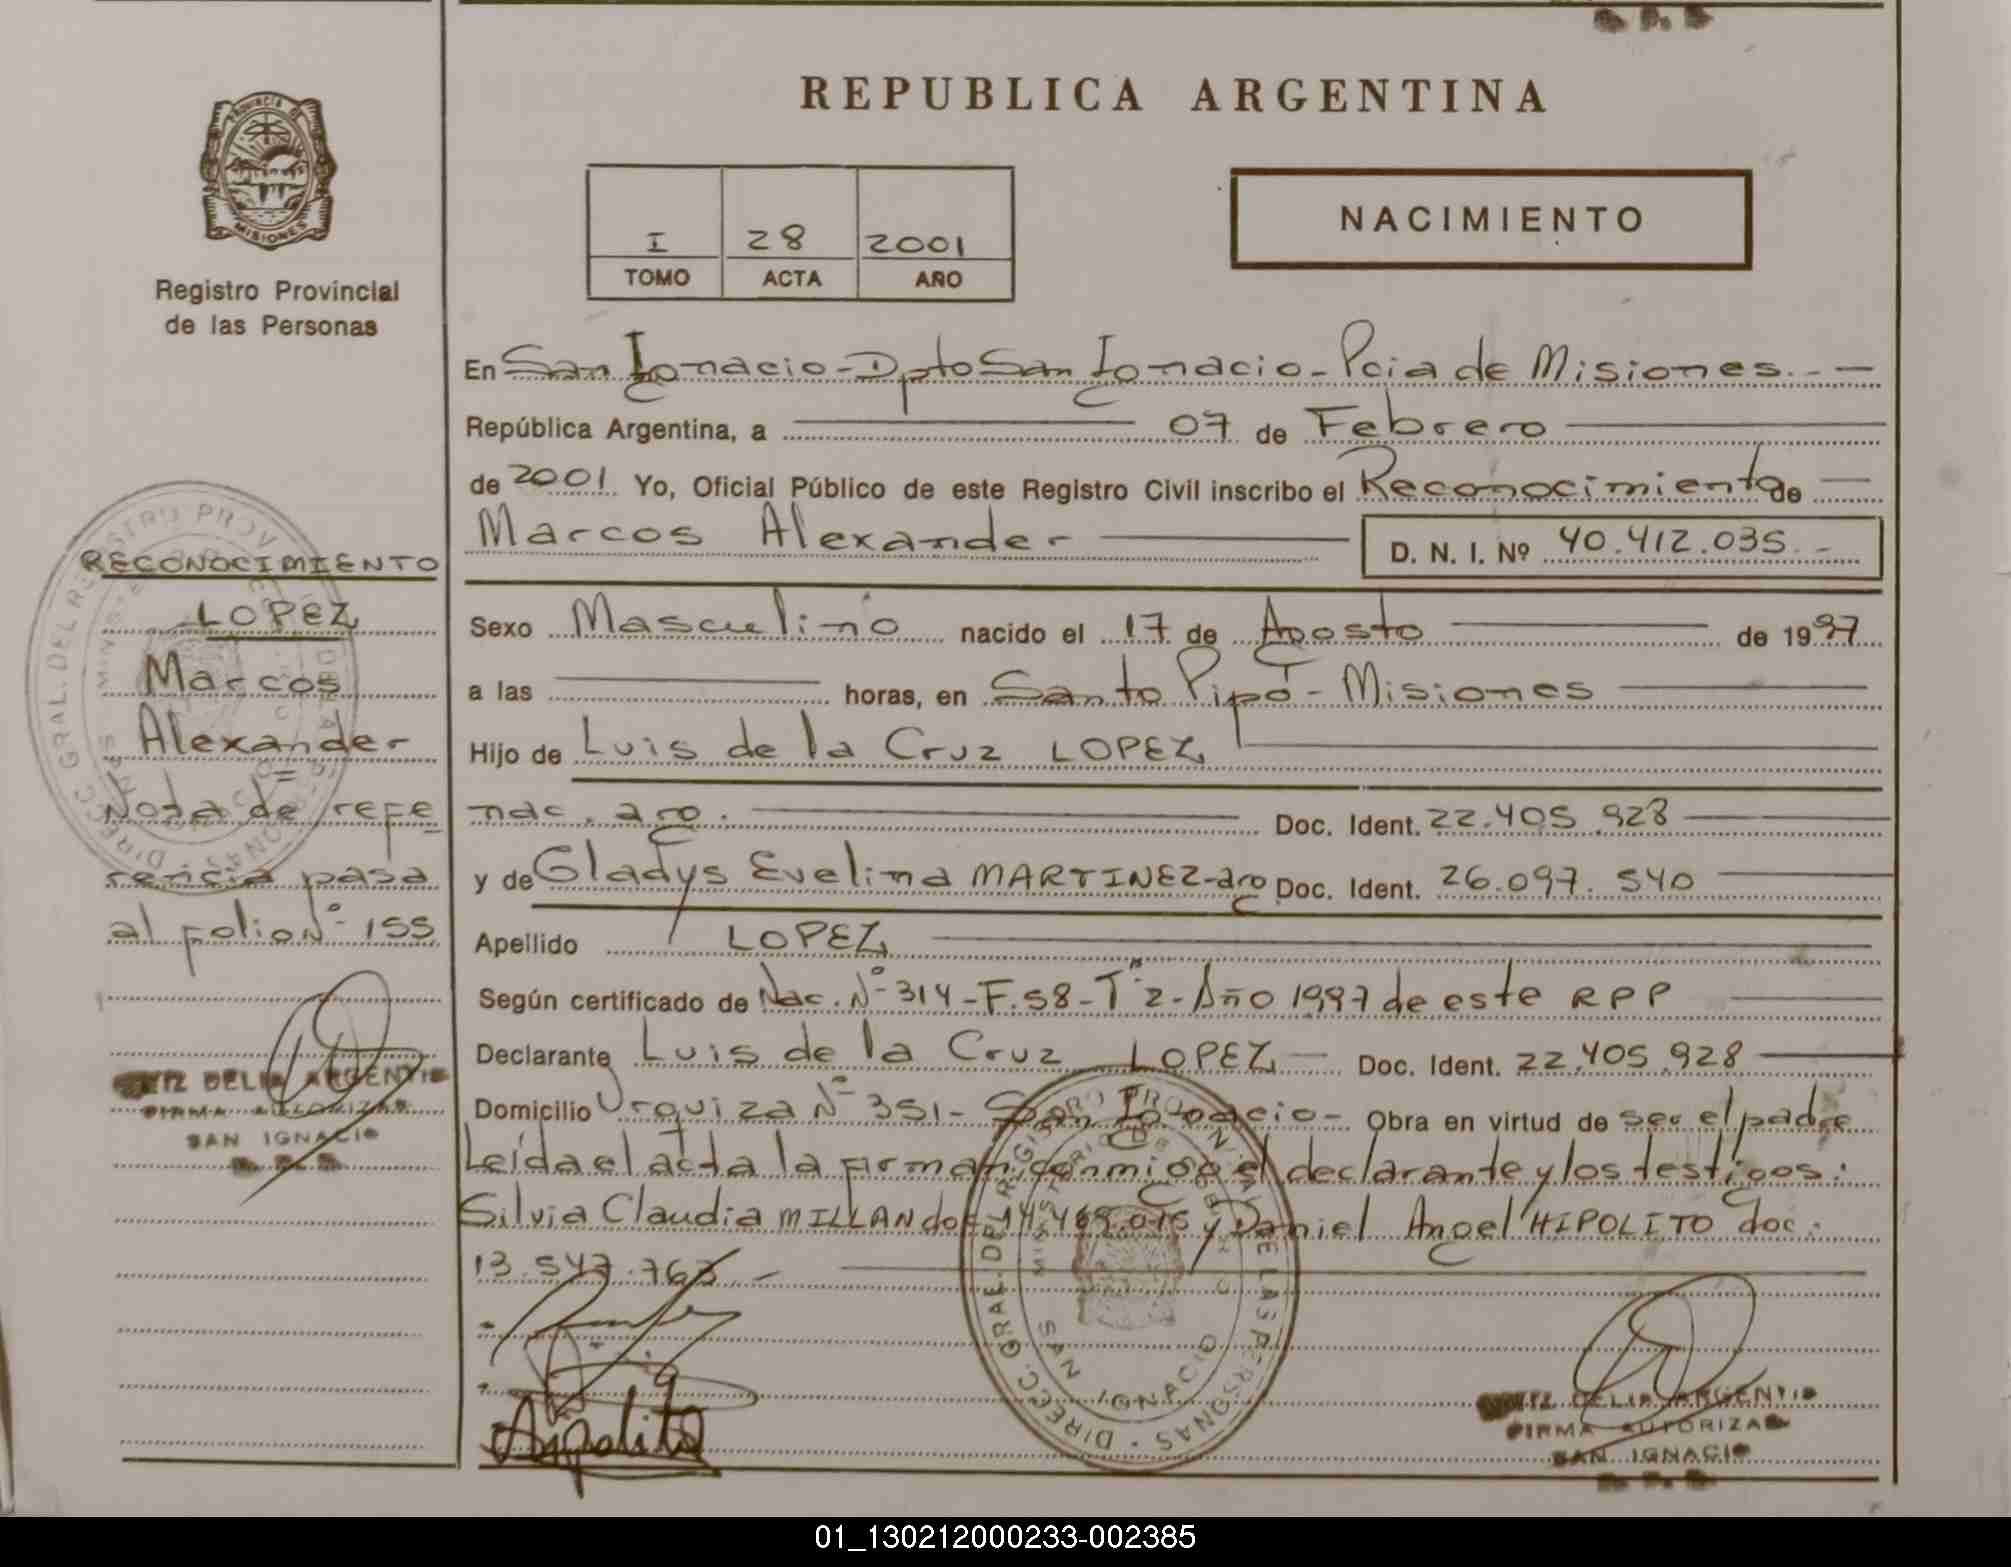 REPUBLICA ARGENTINA
PROVINCIA DE
MISIONES
Registro Provincial
de las Personas
I 28 2001
TOMO ACTA AÑO
NACIMIENTO
En San Ignacio - Dpto San Ignacio - Pcia de Misiones. - —
República Argentina, a 07 de Febrero
de 2001 Yo, Oficial Público de este Registro Civil inscribo el Reconocimiento de
Marcos Alexander D. N. I. Nº 40.412.035. -
Sexo Masculino nacido el 17 de Agosto de 1997
a las horas, en Santo Pipó - Misiones
Hijo de Luis de la Cruz LOPEZ
nac. arg. Doc. Ident. 22.405.928
y de Gladys Evelina MARTINEZ-arg Doc. Ident. 26.097.540
Apellido LOPEZ
Según certificado de Nac. Nº 314 - F. 58 - Tº 2 - Año 1997 de este RPP
Declarante Luis de la Cruz LOPEZ — Doc. Ident. 22.405.928
Domicilio Urquiza Nº 351 - San Ignacio - Obra en virtud de ser el padre
Leída el acta la firman conmigo el declarante y los testigos:
Silvia Claudia MILLAN doc 14.469.015 y Daniel Angel HIPOLITO doc:
13.547.763 -
Hipolito
RECONOCIMIENTO
LOPEZ
Marcos
Alexander
Nota de refe
rencia pasa
al folio Nº 155
DELIA ARGENTI
FIRMA AUTORIZAD
SAN IGNACIO
DIRECC. GRAL. DEL REGISTRO PROVINCIAL DE LAS PERSONAS
SAN IGNACIO
DELIA ARGENTI
FIRMA AUTORIZAD
SAN IGNACIO
01_130212000233-002385